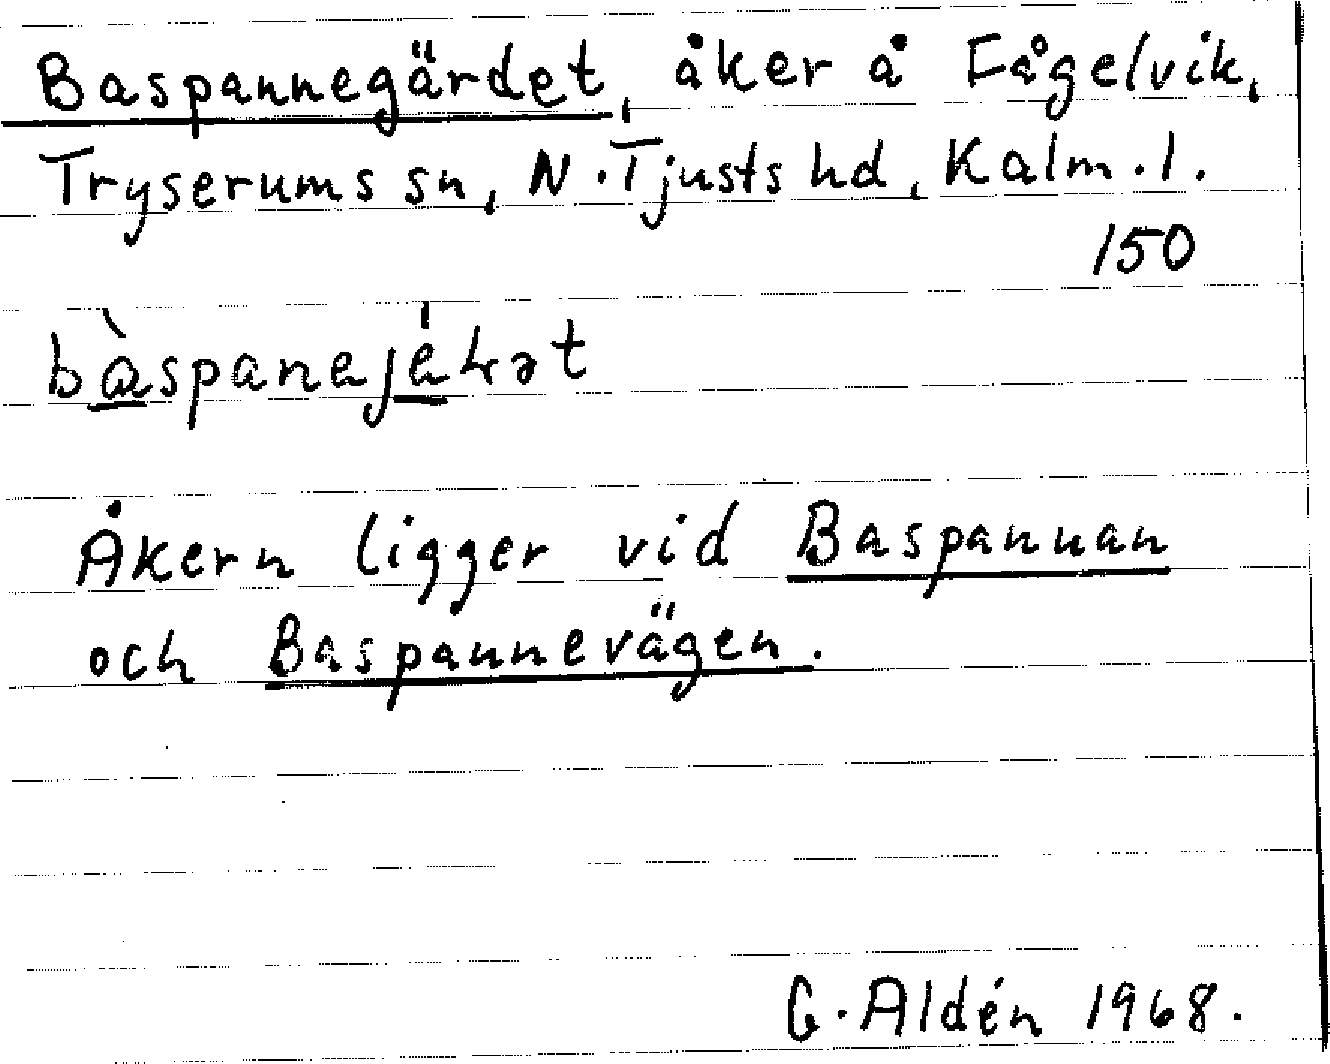 Baspannegärdet, åker å Fågelvik,
Tryserums sn, N. Tjusts hd, Kalm. l.
150
Åkern ligger vid Baspannan
och Baspannevägen.
G. Aldén 1968.